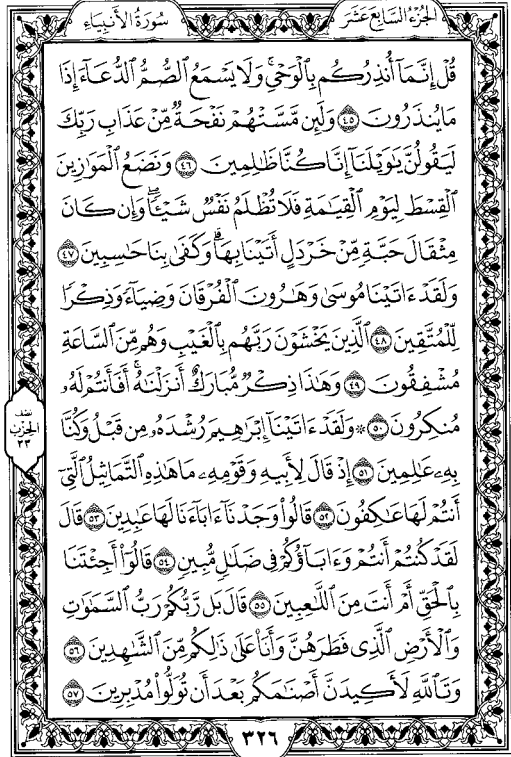 الجُزْءُ السَّابِعَ عَشَرَ
سُورَةُ الأَنْبِيَاءِ
قُلْ إِنَّمَآ أُنذِرُكُم بِٱلْوَحْىِۚ وَلَا يَسْمَعُ ٱلصُّمُّ ٱلدُّعَآءَ إِذَا
مَا يُنذَرُونَ ٤٥ وَلَئِن مَّسَّتْهُمْ نَفْحَةٌ مِّنْ عَذَابِ رَبِّكَ
لَيَقُولُنَّ يَٰوَيْلَنَآ إِنَّا كُنَّا ظَٰلِمِينَ ٤٦ وَنَضَعُ ٱلْمَوَٰزِينَ
ٱلْقِسْطَ لِيَوْمِ ٱلْقِيَٰمَةِ فَلَا تُظْلَمُ نَفْسٌ شَيْـًٔاۖ وَإِن كَانَ
مِثْقَالَ حَبَّةٍ مِّنْ خَرْدَلٍ أَتَيْنَا بِهَاۗ وَكَفَىٰ بِنَا حَٰسِبِينَ ٤٧
وَلَقَدْ ءَاتَيْنَا مُوسَىٰ وَهَٰرُونَ ٱلْفُرْقَانَ وَضِيَآءً وَذِكْرًا
لِّلْمُتَّقِينَ ٤٨ ٱلَّذِينَ يَخْشَوْنَ رَبَّهُم بِٱلْغَيْبِ وَهُم مِّنَ ٱلسَّاعَةِ
مُشْفِقُونَ ٤٩ وَهَٰذَا ذِكْرٌ مُّبَارَكٌ أَنزَلْنَٰهُۚ أَفَأَنتُمْ لَهُۥ
مُنكِرُونَ ٥٠ ۞ وَلَقَدْ ءَاتَيْنَآ إِبْرَٰهِيمَ رُشْدَهُۥ مِن قَبْلُ وَكُنَّا
بِهِۦ عَٰلِمِينَ ٥١ إِذْ قَالَ لِأَبِيهِ وَقَوْمِهِۦ مَا هَٰذِهِ ٱلتَّمَاثِيلُ ٱلَّتِىٓ
أَنتُمْ لَهَا عَٰكِفُونَ ٥٢ قَالُوا۟ وَجَدْنَآ ءَابَآءَنَا لَهَا عَٰبِدِينَ ٥٣ قَالَ
لَقَدْ كُنتُمْ أَنتُمْ وَءَابَآؤُكُمْ فِى ضَلَٰلٍ مُّبِينٍ ٥٤ قَالُوٓا۟ أَجِئْتَنَا
بِٱلْحَقِّ أَمْ أَنتَ مِنَ ٱللَّٰعِبِينَ ٥٥ قَالَ بَل رَّبُّكُمْ رَبُّ ٱلسَّمَٰوَٰتِ
وَٱلْأَرْضِ ٱلَّذِى فَطَرَهُنَّ وَأَنَا۠ عَلَىٰ ذَٰلِكُم مِّنَ ٱلشَّٰهِدِينَ ٥٦
وَتَٱللَّهِ لَأَكِيدَنَّ أَصْنَٰمَكُم بَعْدَ أَن تُوَلُّوا۟ مُدْبِرِينَ ٥٧
نصف
الحزب
٣٣
٣٢٦